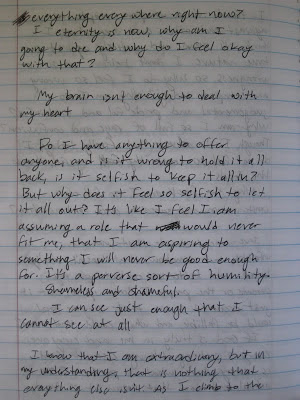 everything everywhere right now?
If eternity is now, why am I
going to die and why do I feel okay
with that?
My brain isnt enough to deal with
my heart
Do I have anything to offer
anyone, and is it wrong to hold it all
back, is it selfish to keep it all in?
But why does it feel so selfish to let
it all out? It's like I feel I am
assuming a role that would never
fit me, that I am aspiring to
something I will never be good enough
for. It's a perverse sort of humility.
Shameless and shameful.
I can see just enough that I
cannot see at all
I know that I am extraordinary, but in
my understanding, that is nothing that
everything else isnt. As I climb to the